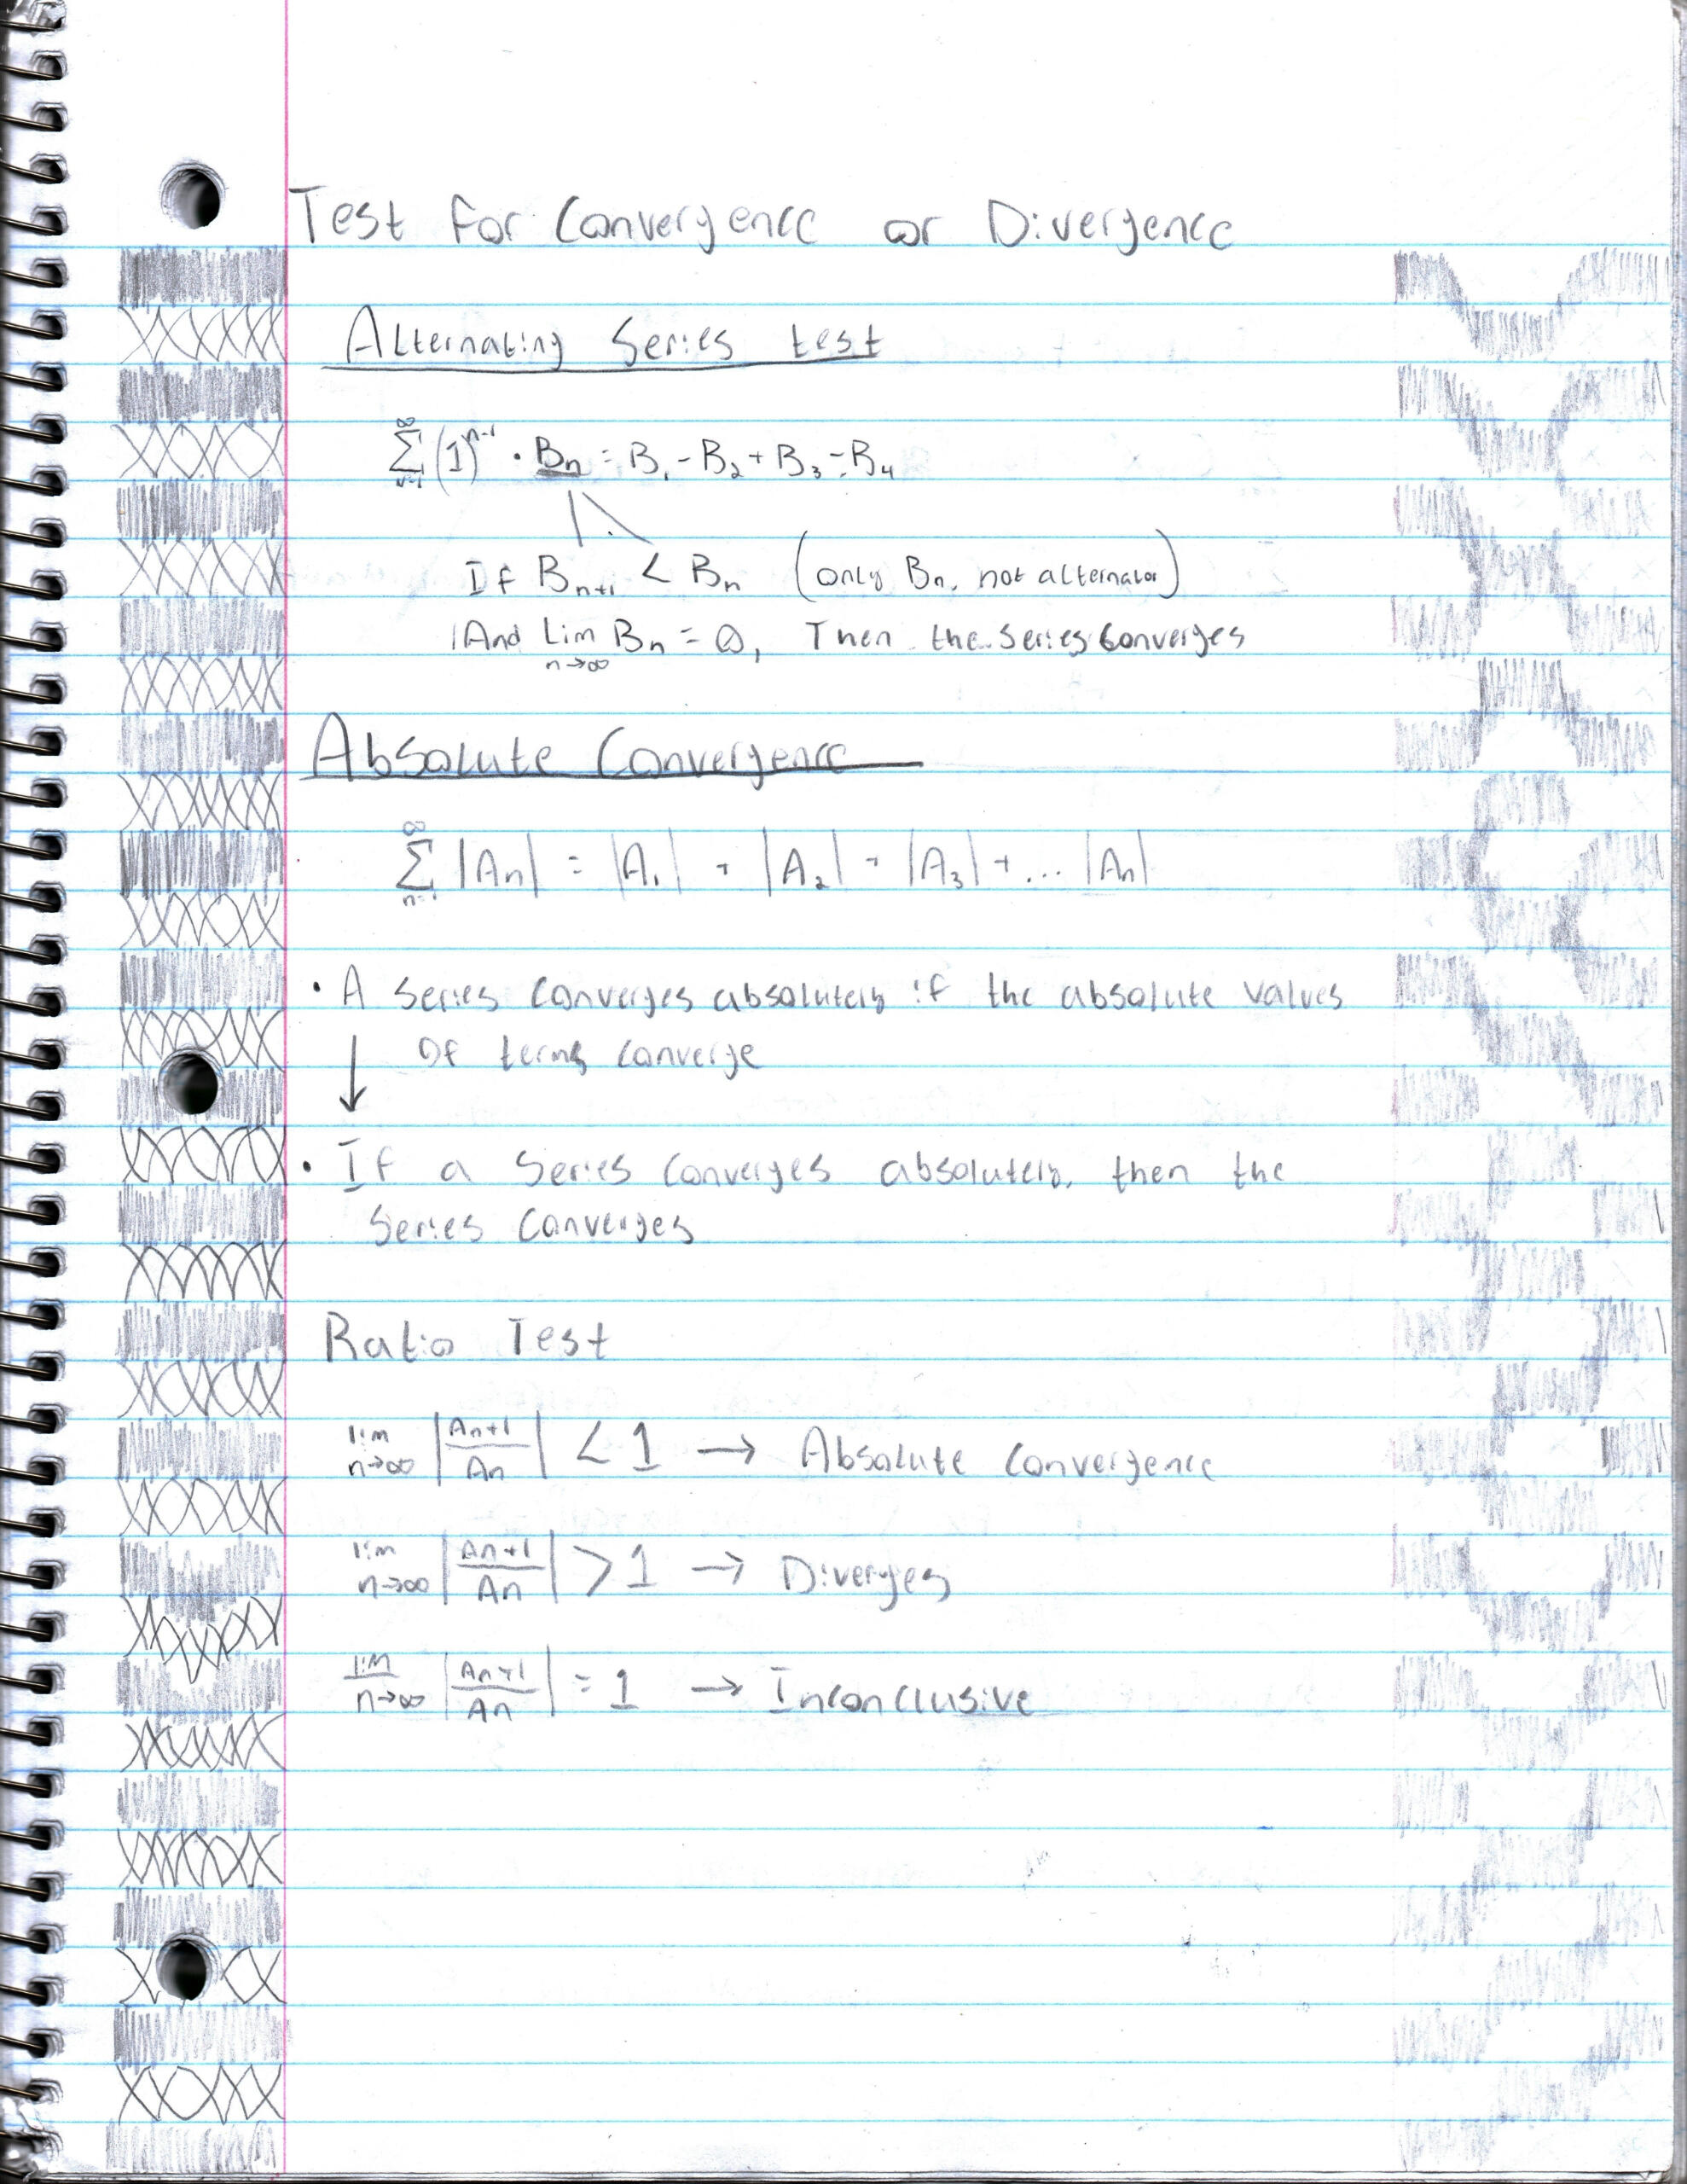 Test For Convergence or Divergence
Alternating Series test
∞ Σ n=1 (1)^n-1 · Bn = B1 - B2 + B3 - B4
If Bn+1 < Bn (only Bn, not alternator)
And Lim n→∞ Bn = 0, Then the Series Converges
Absolute Convergence
∞ Σ n=1 |An| = |A1| + |A2| + |A3| + ... |An|
· A Series Converges absolutely if the absolute values
Of terms Converge
· If a Series Converges absolutely, then the
Series Converges
Ratio Test
lim n→∞ |An+1/An| < 1 → Absolute Convergence
lim n→∞ |An+1/An| > 1 → Diverges
lim n→∞ |An+1/An| = 1 → Inconclusive